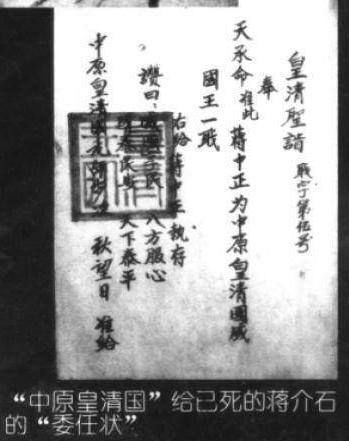 皇清聖 職字第伍号
奉
天承命准此 蔣中正为中原皇清國威
國王一职
右给蔣中正執存
讚曰： 子民 八方服心
泰民安 天下泰平
中原皇清 秋望日 准给
“中原皇清国”给已死的蒋介石
的“委任状”